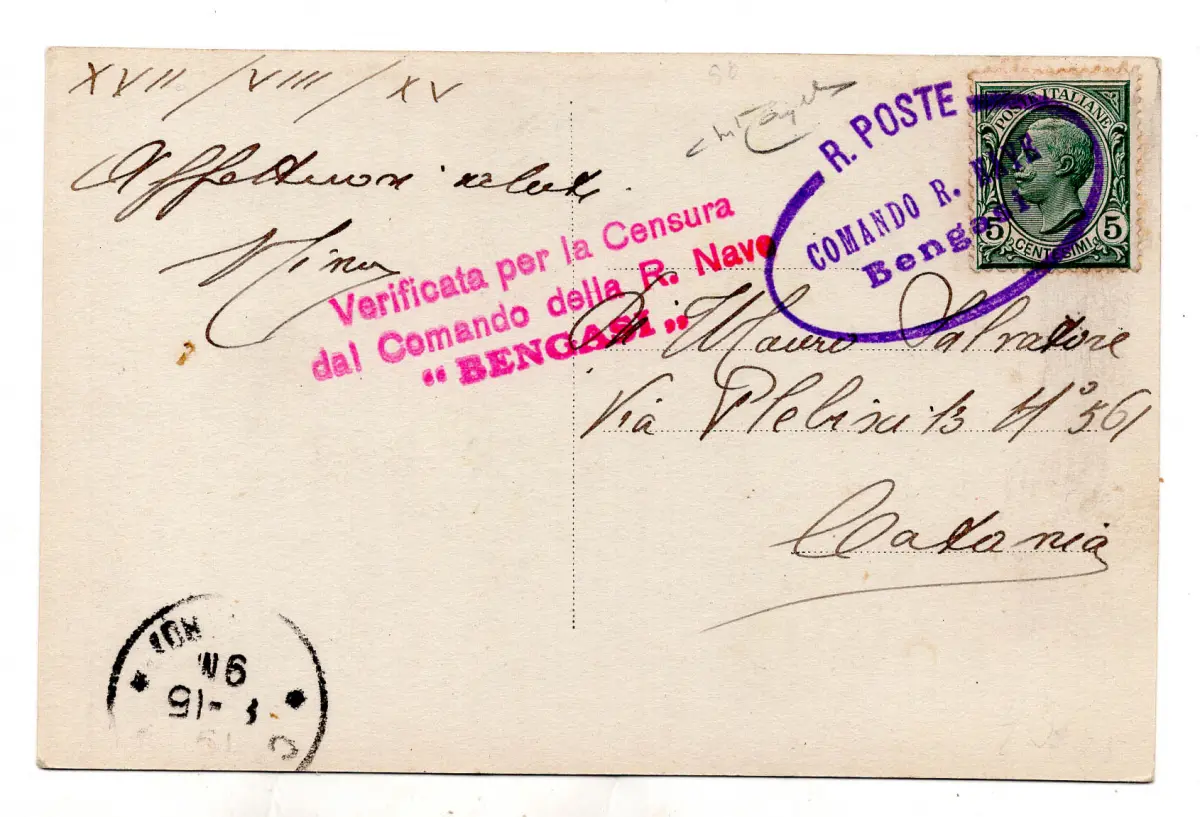 XVII/VIII/XV
Affettuosi saluti.
Nino
Verificata per la Censura
dal Comando della R. Nave
"BENGASI"
R. POSTE
COMANDO R. NAVE
Bengasi
POSTE ITALIANE
5 5
CENTESIMI
Di Mauro Salvatore
Via Plebiscito N° 561
Catania
9 M
-15